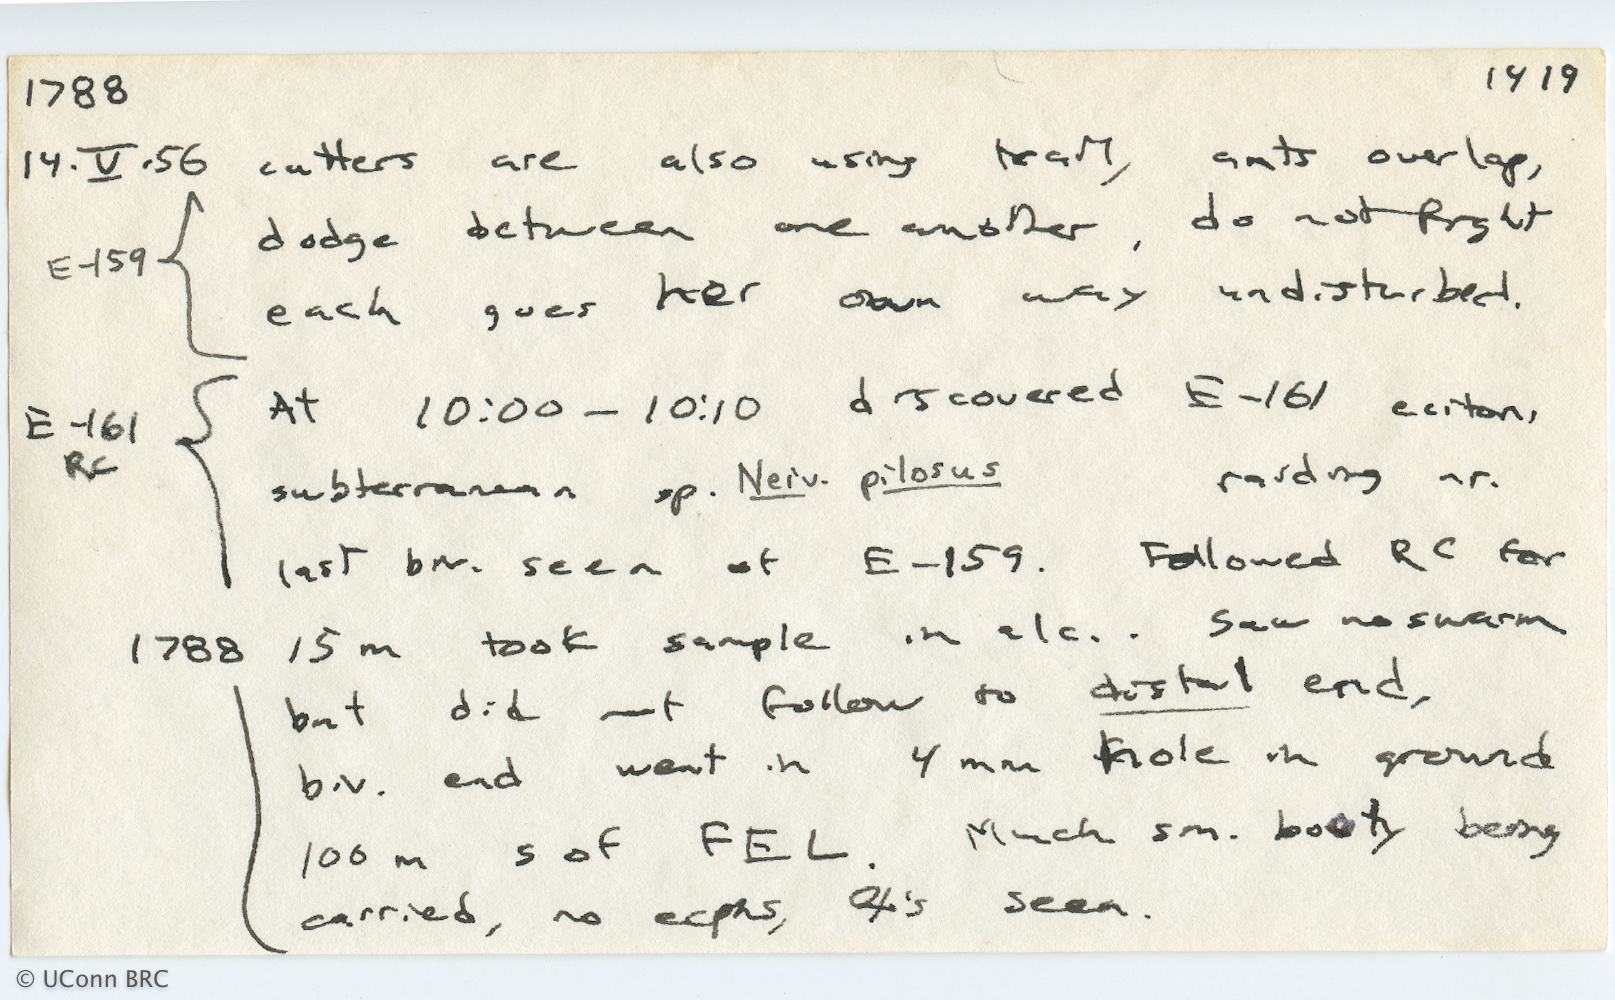 1788 1419
14.V.56 cutters are also using trail, ants overlap,
dodge between one another, do not fight
E-159
each goes her own way undisturbed.
At 10:00 - 10:10 discovered E-161 eciton,
E-161
RC
subterranean sp. Neiv. pilosus raiding nr.
last biv. seen at E-159. Followed RC for
1788 15 m took sample in alc.. Saw no swarm
but did not follow to distal end,
biv. end went in 4 mm hole in ground
100 m S of FEL. Much sm. booty being
carried, no ecphs, seen.
© UConn BRC